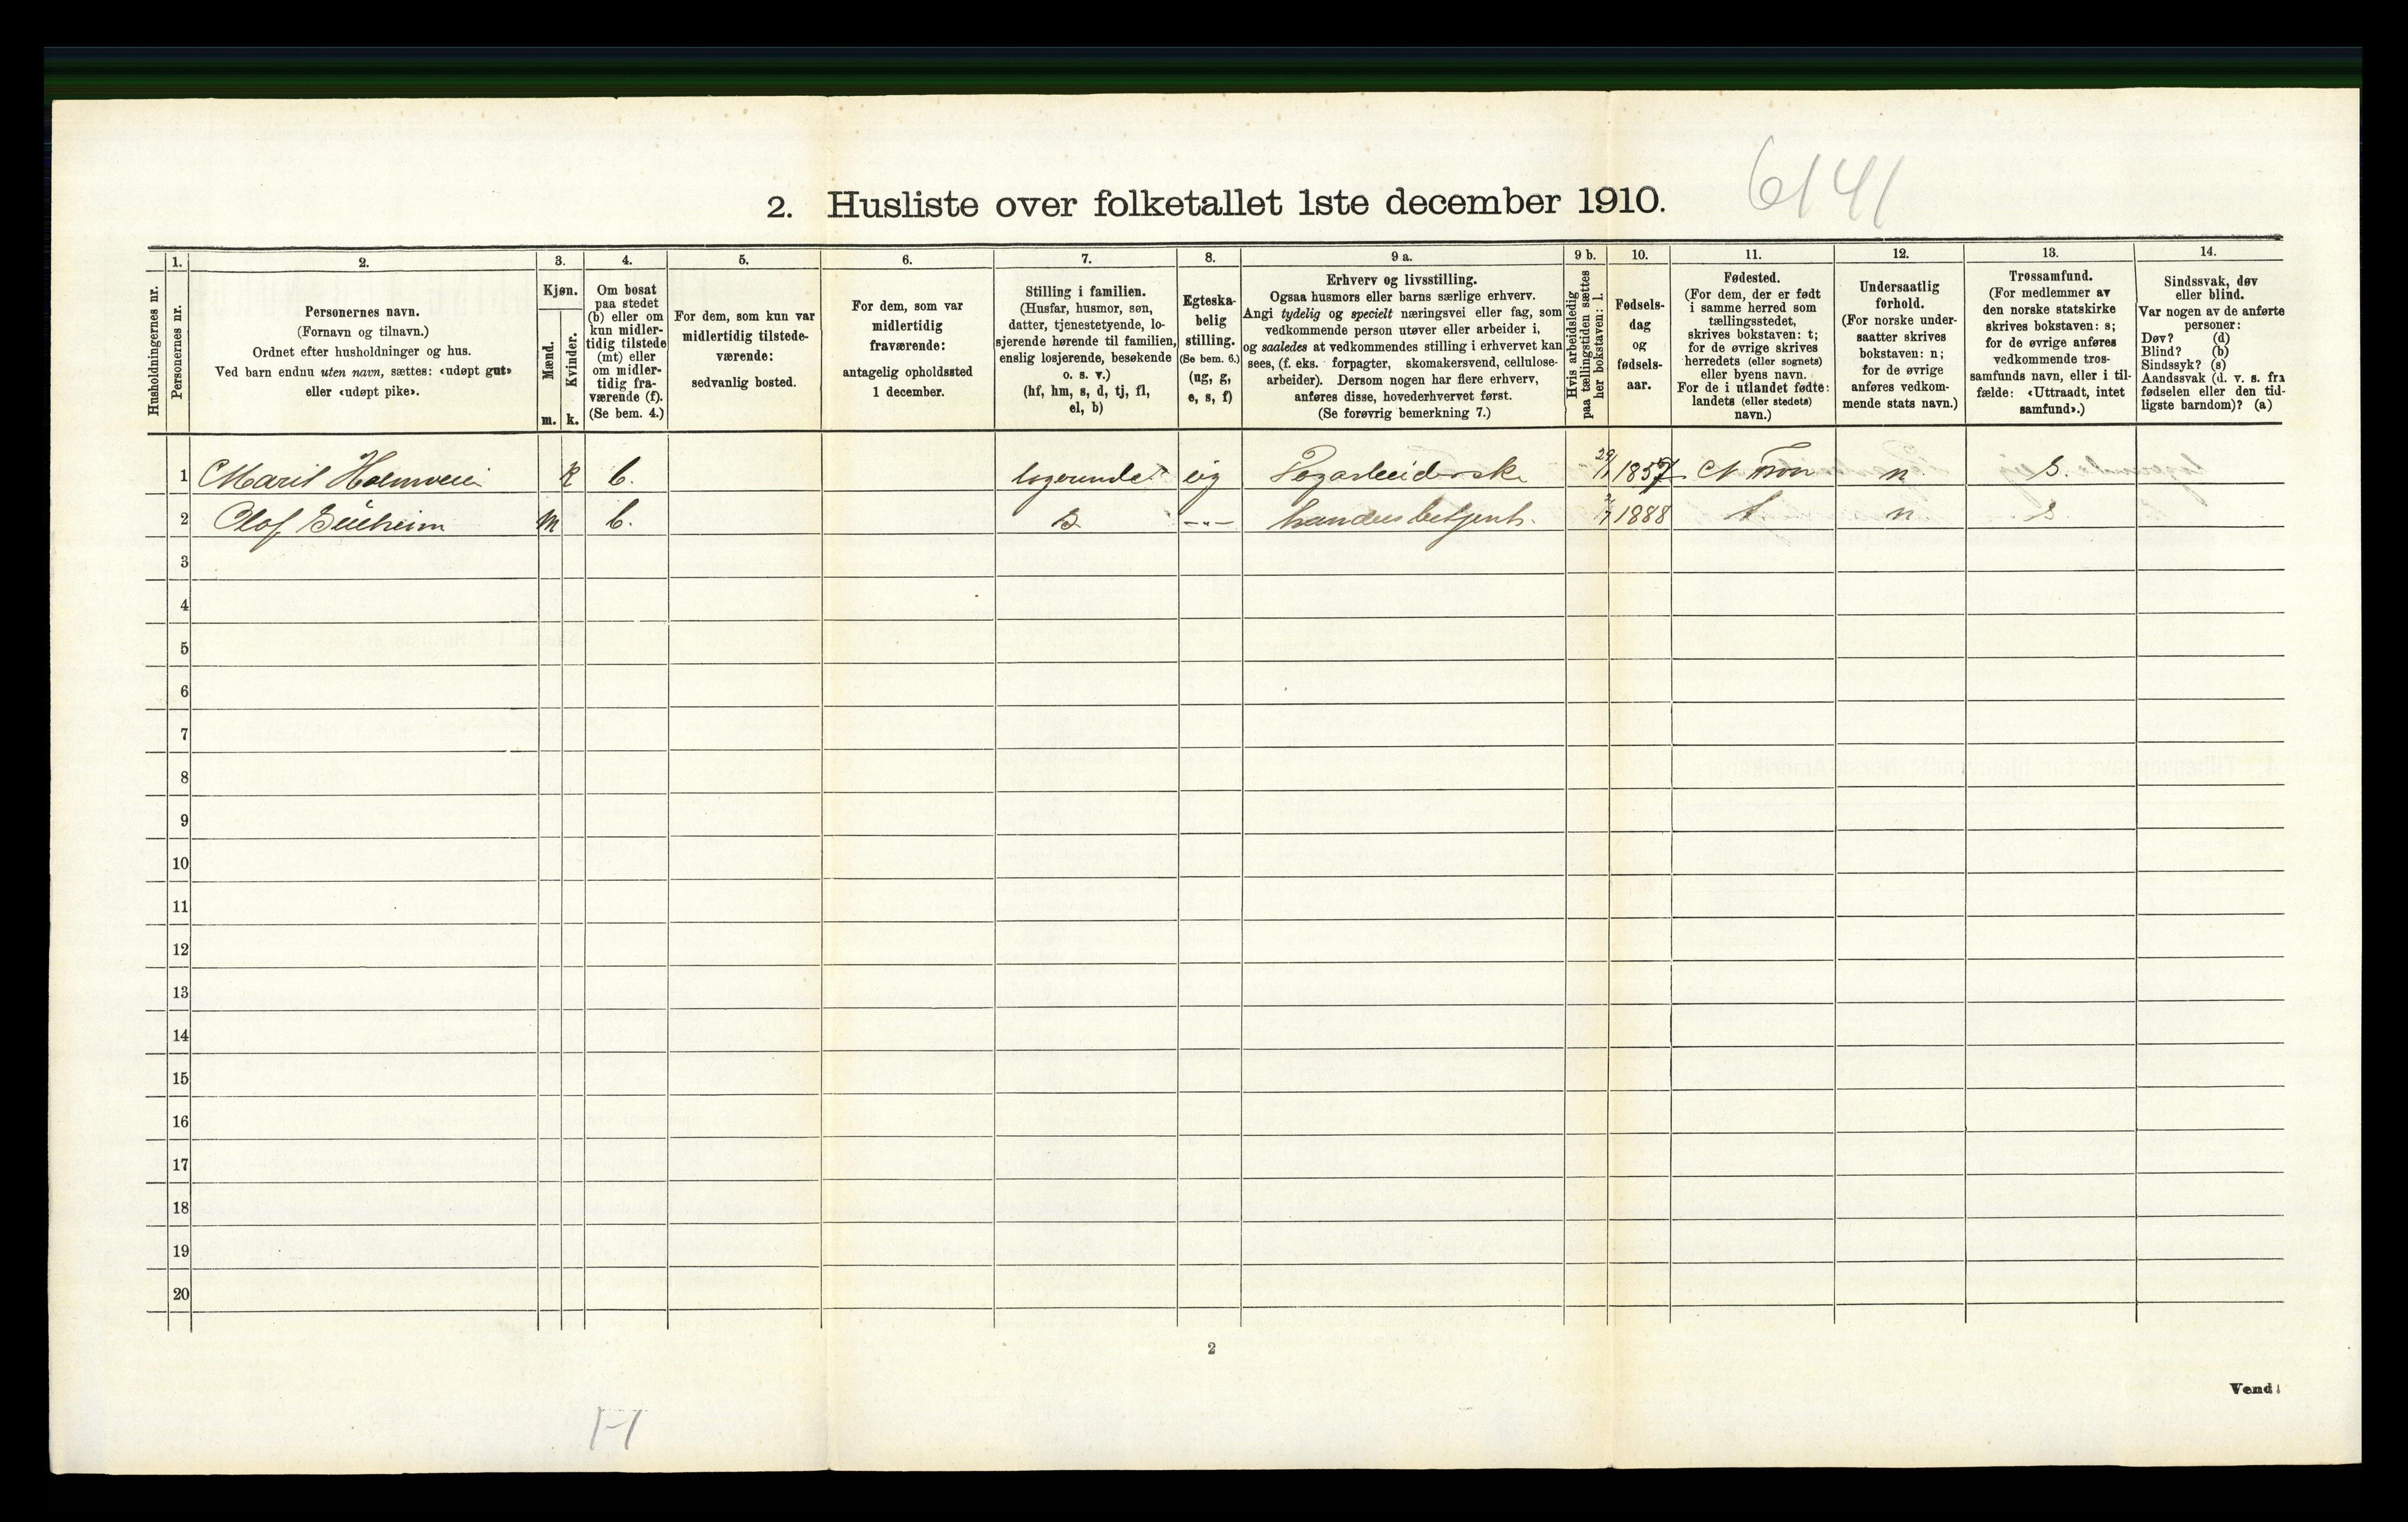 6141
2. Husliste over folketallet 1ste december 1910.
Husholdningernes nr.
1.
Personernes nr.
2.
Personernes navn.
(Fornavn og tilnavn.)
Ordnet efter husholdninger og hus.
Ved barn endnu uten navn, sættes: «udøpt gut»
eller «udøpt pike».
3.
Kjøn.
Mænd.
Kvinder.
m. k.
4.
Om bosat
paa stedet
(b) eller om
kun midler-
tidig tilstede
(mt) eller
om midler-
tidig fra-
værende (f).
(Se bem. 4.)
5.
For dem, som kun var
midlertidig tilstede-
værende:
sedvanlig bosted.
6.
For dem, som var
midlertidig
fraværende:
antagelig opholdssted
1 december.
7.
Stilling i familien.
(Husfar, husmor, søn,
datter, tjenestetyende, lo-
sjerende hørende til familien,
enslig losjerende, besøkende
o. s. v.)
(hf, hm, s, d, tj, fl,
el, b)
8.
Egteska-
belig
stilling.
(Se bem. 6.)
(ug, g,
e, s, f)
9 a.
Erhverv og livsstilling.
Ogsaa husmors eller barns særlige erhverv.
Angi tydelig og specielt næringsvei eller fag, som
vedkommende person utøver eller arbeider i,
og saaledes at vedkommendes stilling i erhvervet kan
sees, (f. eks. forpagter, skomakersvend, cellulose-
arbeider). Dersom nogen har flere erhverv,
anføres disse, hovederhvervet først.
(Se forøvrig bemerkning 7.)
9 b.
Hvis arbeidsledig
paa tællingstiden sættes
her bokstaven: l.
10.
Fødsels-
dag
og
fødsels-
aar.
11.
Fødested.
(For dem, der er født
i samme herred som
tællingsstedet,
skrives bokstaven: t;
for de øvrige skrives
herredets (eller sognets)
eller byens navn.
For de i utlandet fødte:
landets (eller stedets)
navn.)
12.
Undersaatlig
forhold.
(For norske under-
saatter skrives
bokstaven: n;
for de øvrige
anføres vedkom-
mende stats navn.)
13.
Trossamfund.
(For medlemmer av
den norske statskirke
skrives bokstaven: s;
for de øvrige anføres
vedkommende tros-
samfunds navn, eller i til-
fælde: «Uttraadt, intet
samfund».)
14.
Sindssvak, døv
eller blind.
Var nogen av de anførte
personer:
Døv? (d)
Blind? (b)
Sindssyk? (s)
Aandssvak (d. v. s. fra
fødselen eller den tid-
ligste barndom)? (a)
1 Marit k b. logerende 1857 N Fron n s.
2 Olof m b. -"- 1888 t n s
3
4
5
6
7
8
9
10
11
12
13
14
15
16
17
18
19
20
2
Vend!